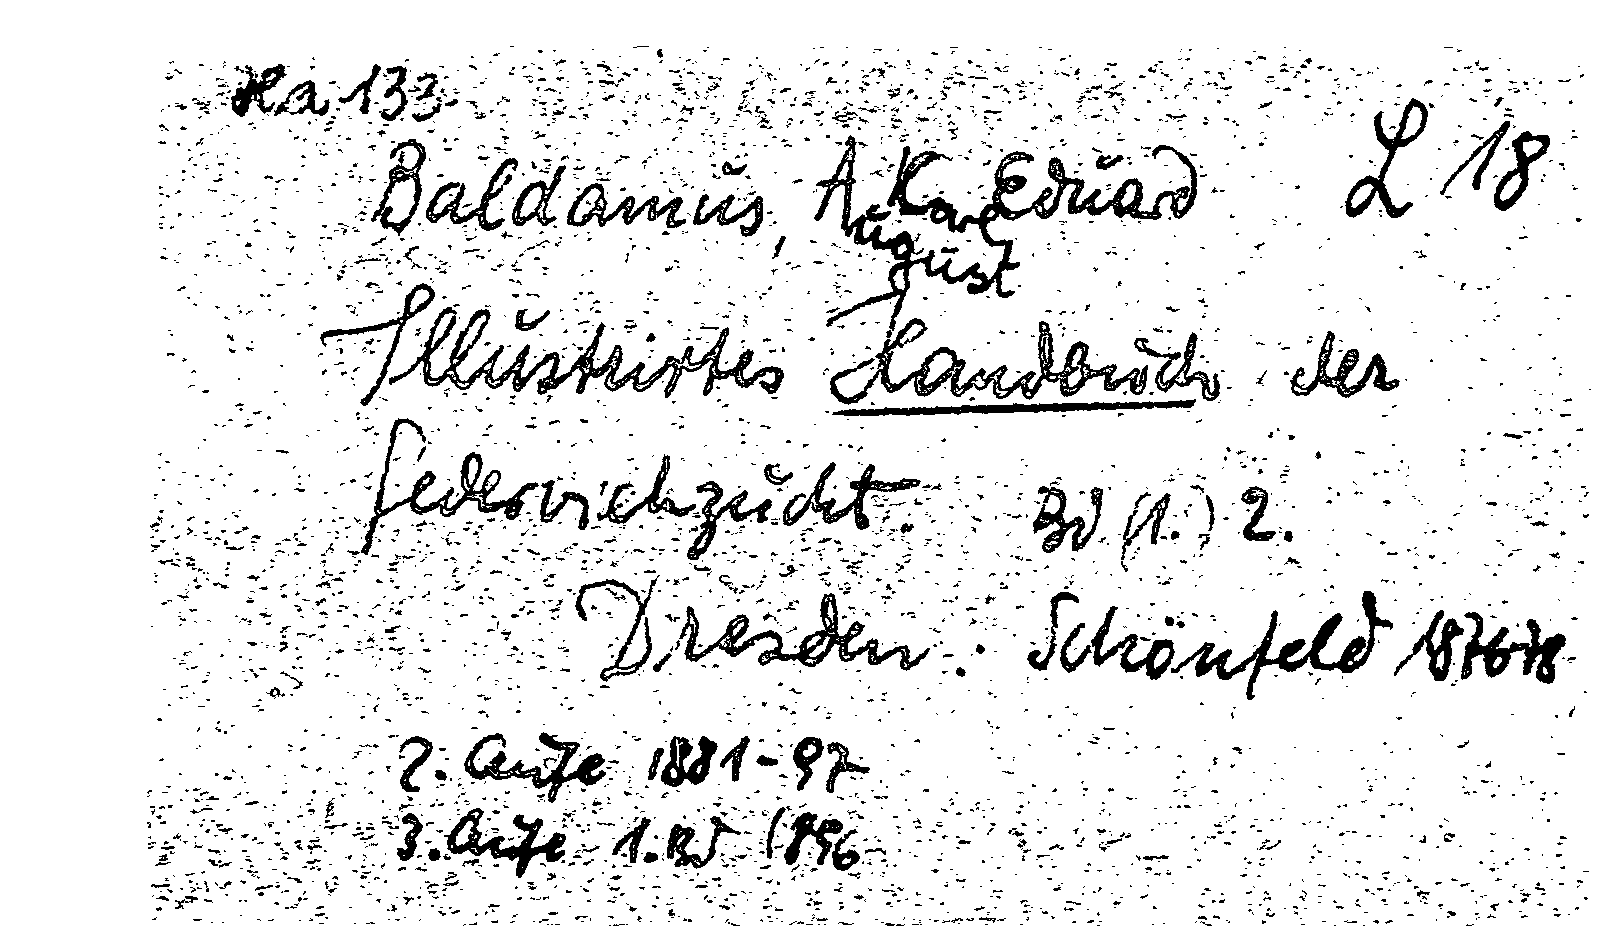 Ha 133
Baldamus, August Karl Eduard L 18
Illustrirtes Handbuch der
Federviehzucht. Bd (1.) 2.
Dresden: Schönfeld 1876-78
2. Aufl 1881-97
3. Aufl 1. Bd 1896